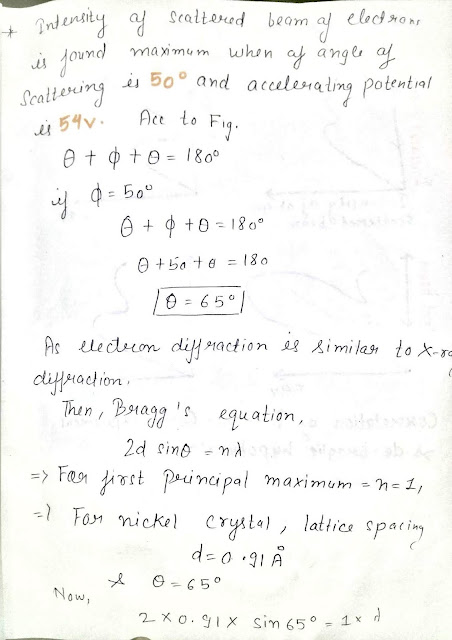 * Intensity of scattered beam of electrons
is found maximum when of angle of
Scattering is 50° and accelerating potential
is 54v. Acc to Fig.
θ + ϕ + θ = 180°
if ϕ = 50°
θ + ϕ + θ = 180°
θ + 50 + θ = 180
θ = 65°
As electron diffraction is similar to X-ra
diffraction.
Then, Bragg's equation,
2d sinθ = nλ
=> For first principal maximum = n = 1,
=> For nickel crystal, lattice spacing
d = 0.91 Å
& θ = 65°
Now,
2 × 0.91 × sin 65° = 1 × λ